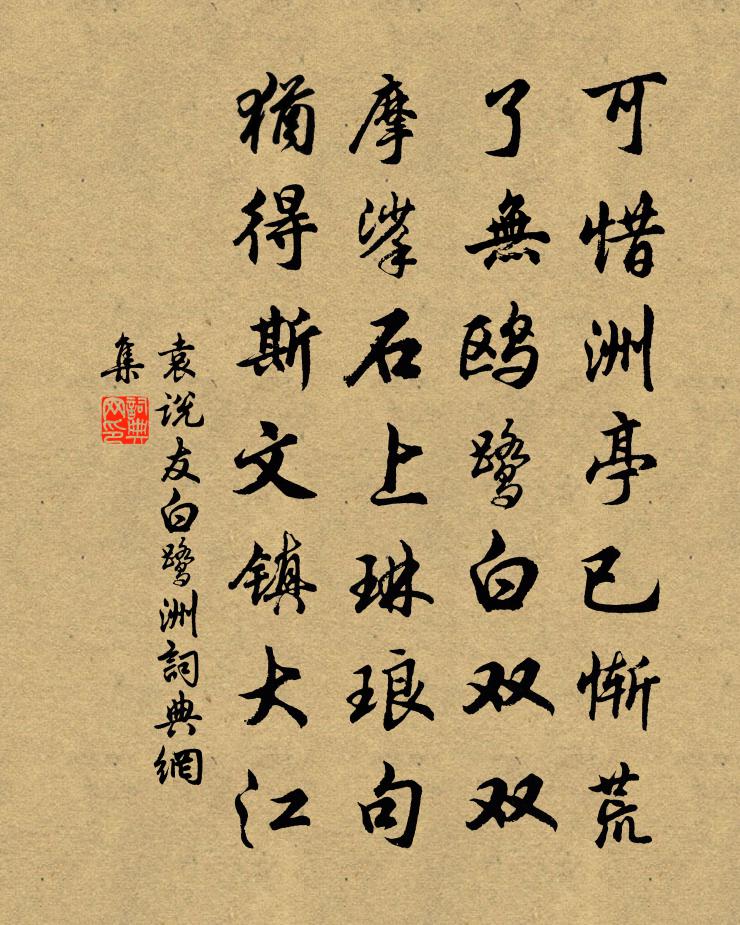 可惜洲亭已惭荒
了無鸥鹭白双双
摩挲石上琳琅句
猶得斯文镇大江
袁说友白鹭洲詞典網
集
詞典网印